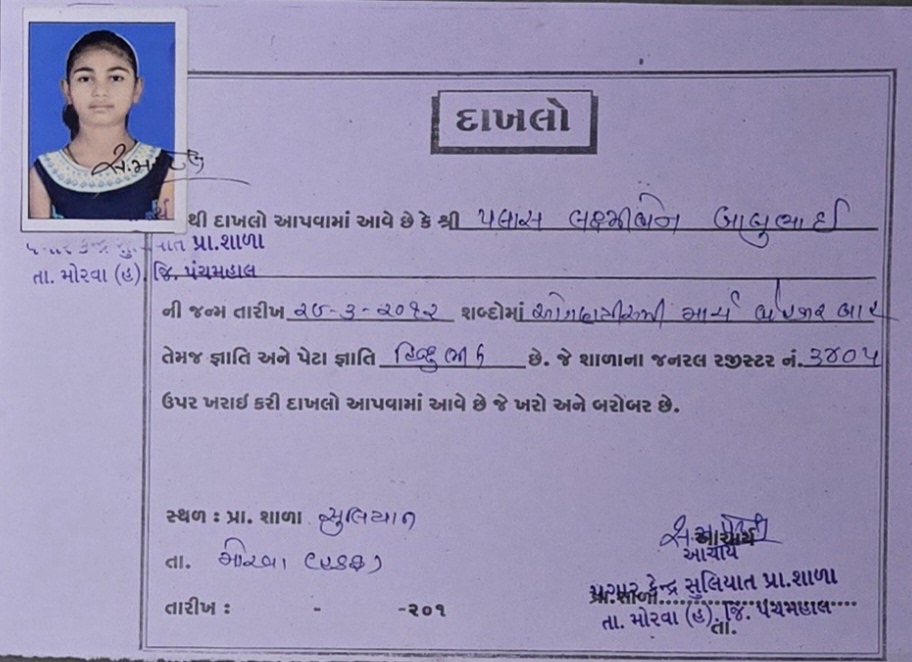 દાખલો
થી દાખલો આપવામાં આવે છે કે શ્રી પલાસ લક્ષ્મીબેન બાબુભાઈ
પ્રા.શાળા
તા. મોરવા (હ). જિ. પંચમહાલ
ની જન્મ તારીખ ૨૯-૩-૨૦૧૨ શબ્દોમાં ઓગણત્રીસમી માર્ચ બે હજાર બાર
તેમજ જ્ઞાતિ અને પેટા જ્ઞાતિ હિન્દુ ભીલ છે. જે શાળાના જનરલ રજીસ્ટર નં. ૩૪૦૫
ઉપર ખરાઈ કરી દાખલો આપવામાં આવે છે જે ખરો અને બરોબર છે.
સ્થળ : પ્રા. શાળા સુલિયાત
તા. મોરવા (હડફ)
તારીખ : - -૨૦૧
આચાર્ય
આચાર્ય
પગાર કેન્દ્ર સુલિયાત પ્રા.શાળા
પ્રા.શાળા
તા. મોરવા (હ). જિ. પંચમહાલ
તા.